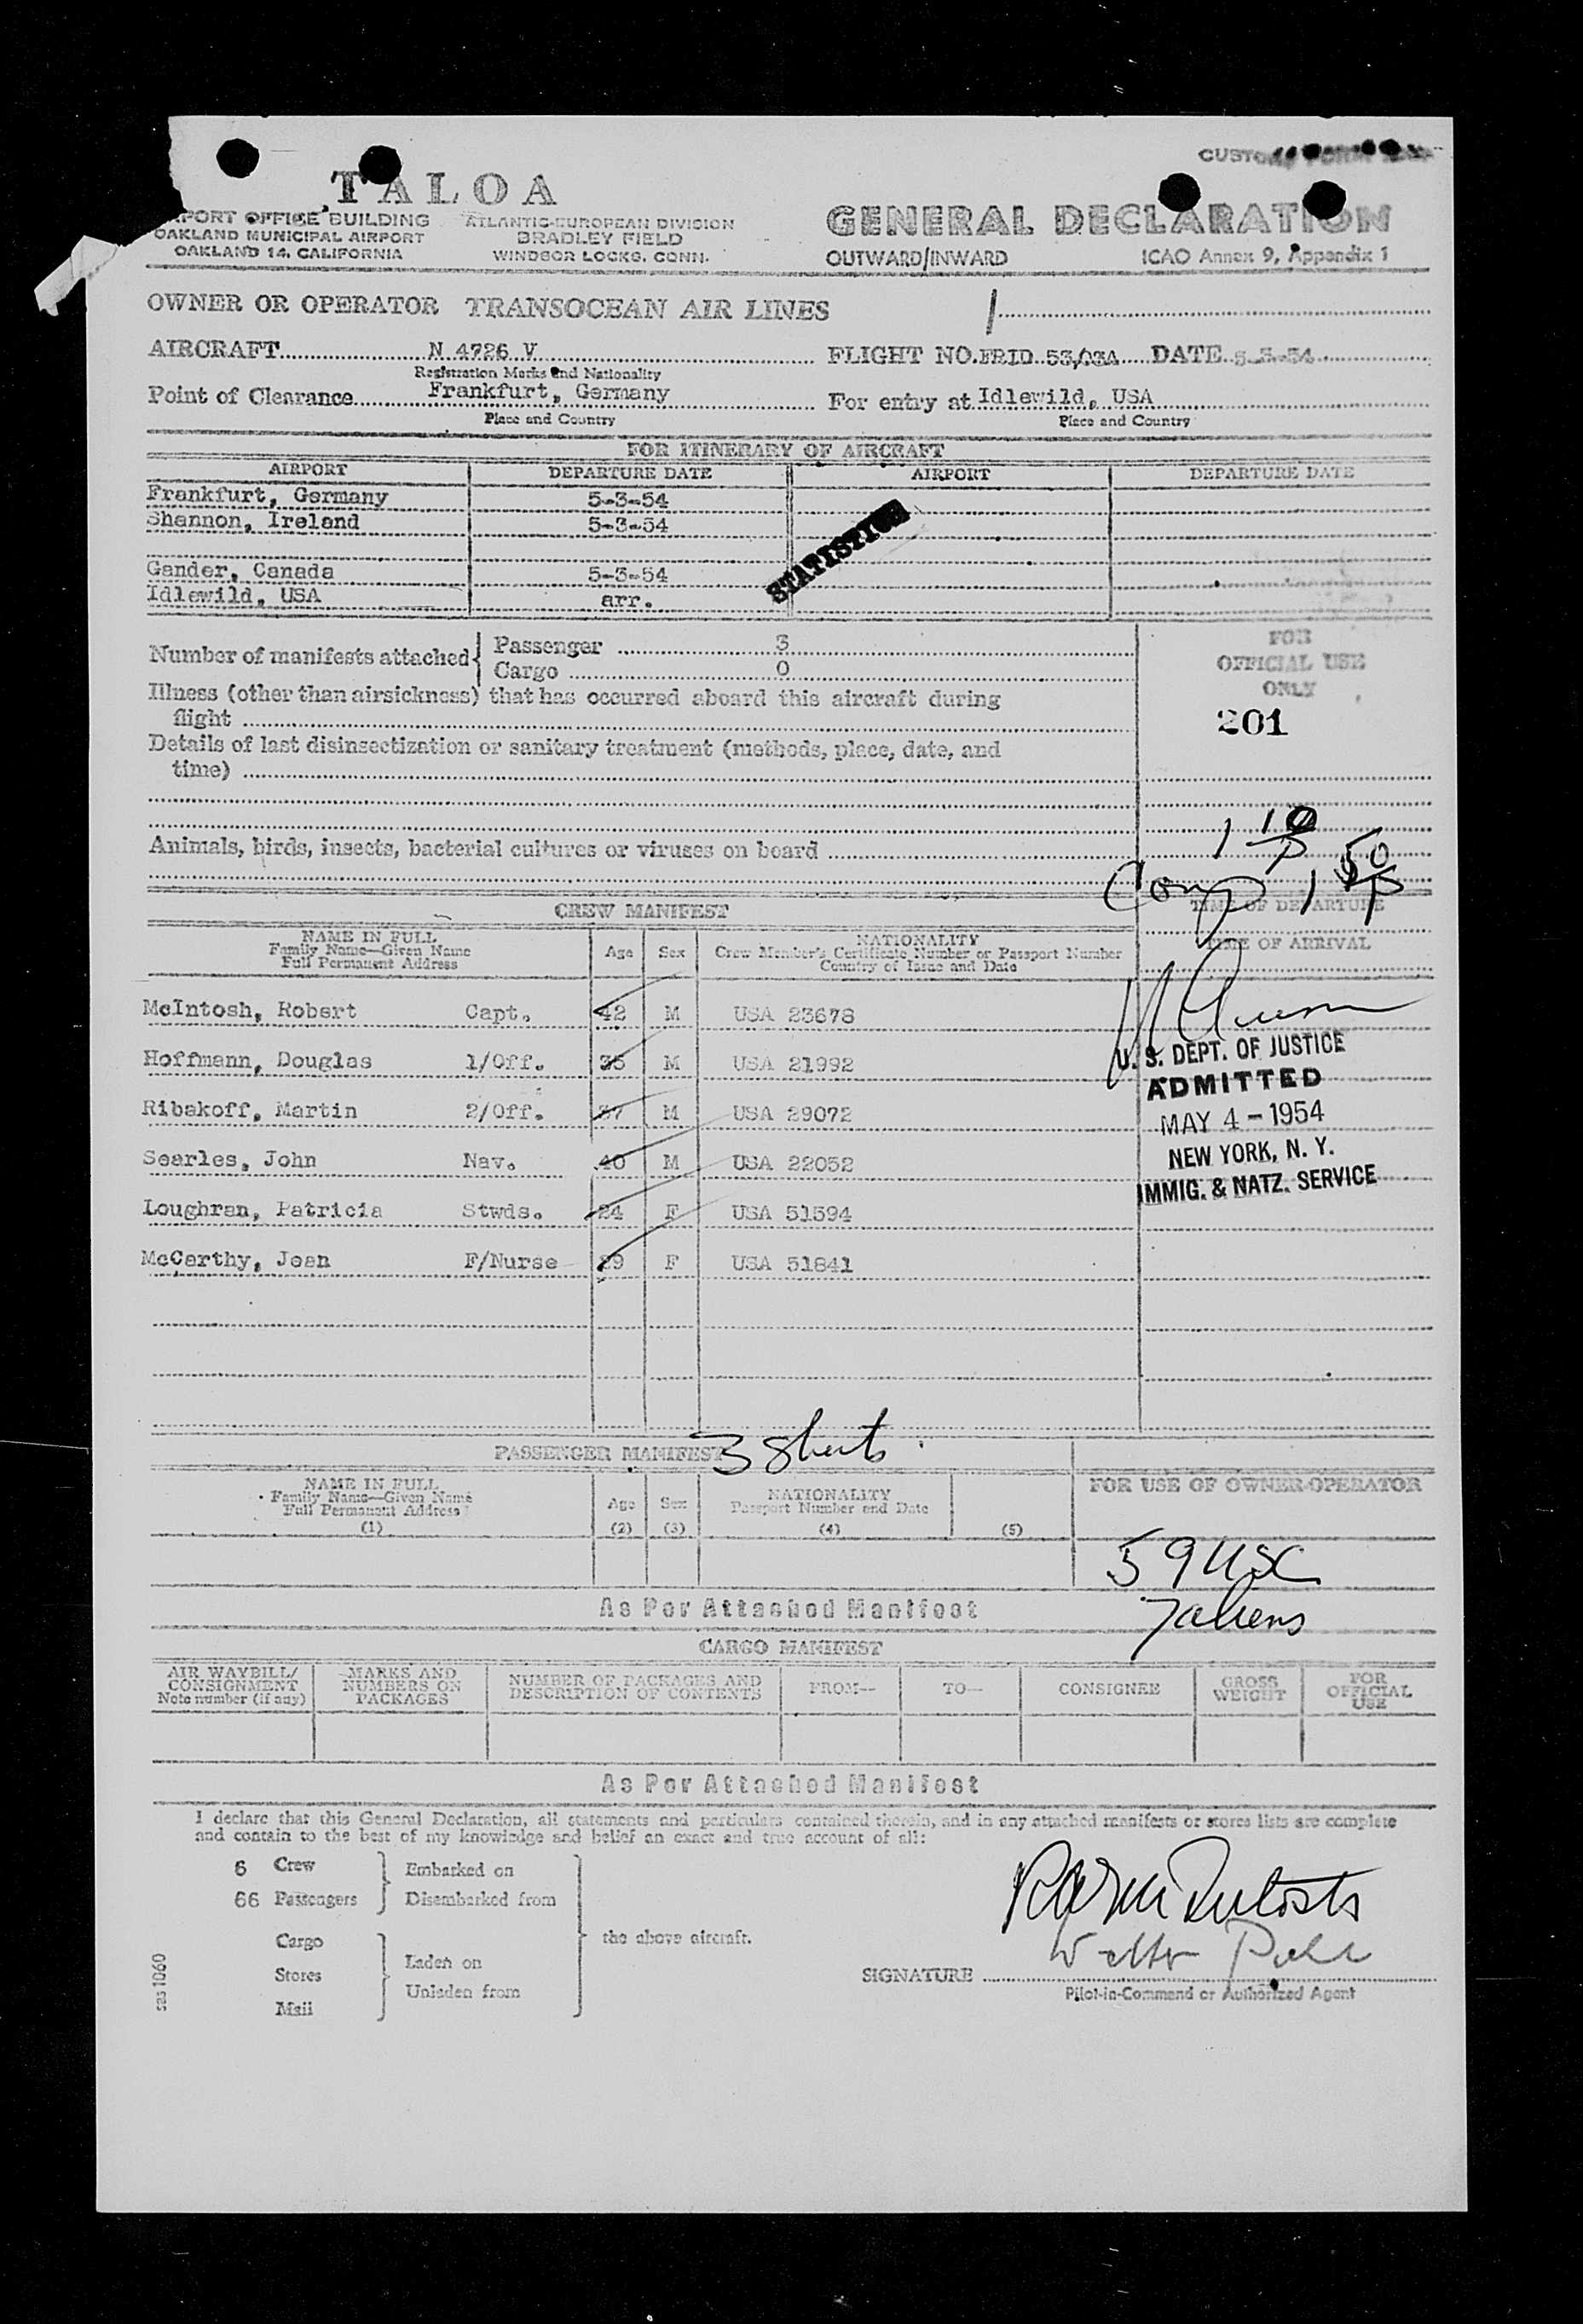 TALOA
PORT OFFICE BUILDING
OAKLAND MUNICIPAL AIRPORT
OAKLAND 14, CALIFORNIA
ATLANTIC-EUROPEAN DIVISION
BRADLEY FIELD
WINDSOR LOCKS, CONN.
CUSTOMS FORM
GENERAL DECLARATION
OUTWARD/INWARD ICAO Annex 9, Appendix 1
OWNER OR OPERATOR TRANSOCEAN AIR LINES
AIRCRAFT N 4726 V FLIGHT NO. FRID 53/03A DATE 5-3-54
Registration Marks and Nationality
Point of Clearance Frankfurt, Germany For entry at Idlewild, USA
Place and Country Place and Country
FOR ITINERARY OF AIRCRAFT
AIRPORT DEPARTURE DATE AIRPORT DEPARTURE DATE
Frankfurt, Germany 5-3-54
Shannon, Ireland 5-3-54
Gander, Canada 5-3-54
Idlewild, USA arr.
STATISTICS
Number of manifests attached { Passenger 3
Cargo 0
FOR
OFFICIAL USE
ONLY
201
Illness (other than airsickness) that has occurred aboard this aircraft during
flight
Details of last disinsectization or sanitary treatment (methods, place, date, and
time)
Animals, birds, insects, bacterial cultures or viruses on board
1 10 P
Comp 1 50 P
TIME OF DEPARTURE
TIME OF ARRIVAL
CREW MANIFEST
NAME IN FULL
Family Name—Given Name
Full Permanent Address
Age Sex
NATIONALITY
Crew Member's Certificate Number or Passport Number
Country of Issue and Date
McIntosh, Robert Capt. 42 M USA 23678
Hoffmann, Douglas 1/Off. 35 M USA 21992
Ribakoff, Martin 2/Off. 37 M USA 29072
Searles, John Nav. 40 M USA 22052
Loughran, Patricia Stwds. 24 F USA 51594
McCarthy, Jean F/Nurse 29 F USA 51841
U. S. DEPT. OF JUSTICE
ADMITTED
MAY 4 - 1954
NEW YORK, N. Y.
IMMIG. & NATZ. SERVICE
PASSENGER MANIFEST 3 Sheets
NAME IN FULL
Family Name—Given Name
Full Permanent Address
(1)
Age
(2)
Sex
(3)
NATIONALITY
Passport Number and Date
(4)
(5)
FOR USE OF OWNER-OPERATOR
59 USC
7 aliens
As Per Attached Manifest
CARGO MANIFEST
AIR WAYBILL/
CONSIGNMENT
Note number (if any)
MARKS AND
NUMBERS ON
PACKAGES
NUMBER OF PACKAGES AND
DESCRIPTION OF CONTENTS
FROM—
TO—
CONSIGNEE
GROSS
WEIGHT
FOR
OFFICIAL
USE
As Per Attached Manifest
I declare that this General Declaration, all statements and particulars contained therein, and in any attached manifests or stores lists are complete
and contain to the best of my knowledge and belief an exact and true account of all:
6 Crew
66 Passengers
Embarked on
Disembarked from
Cargo
Stores
Mail
Laden on
Unladen from
the above aircraft.
SIGNATURE
Pilot-in-Command or Authorized Agent